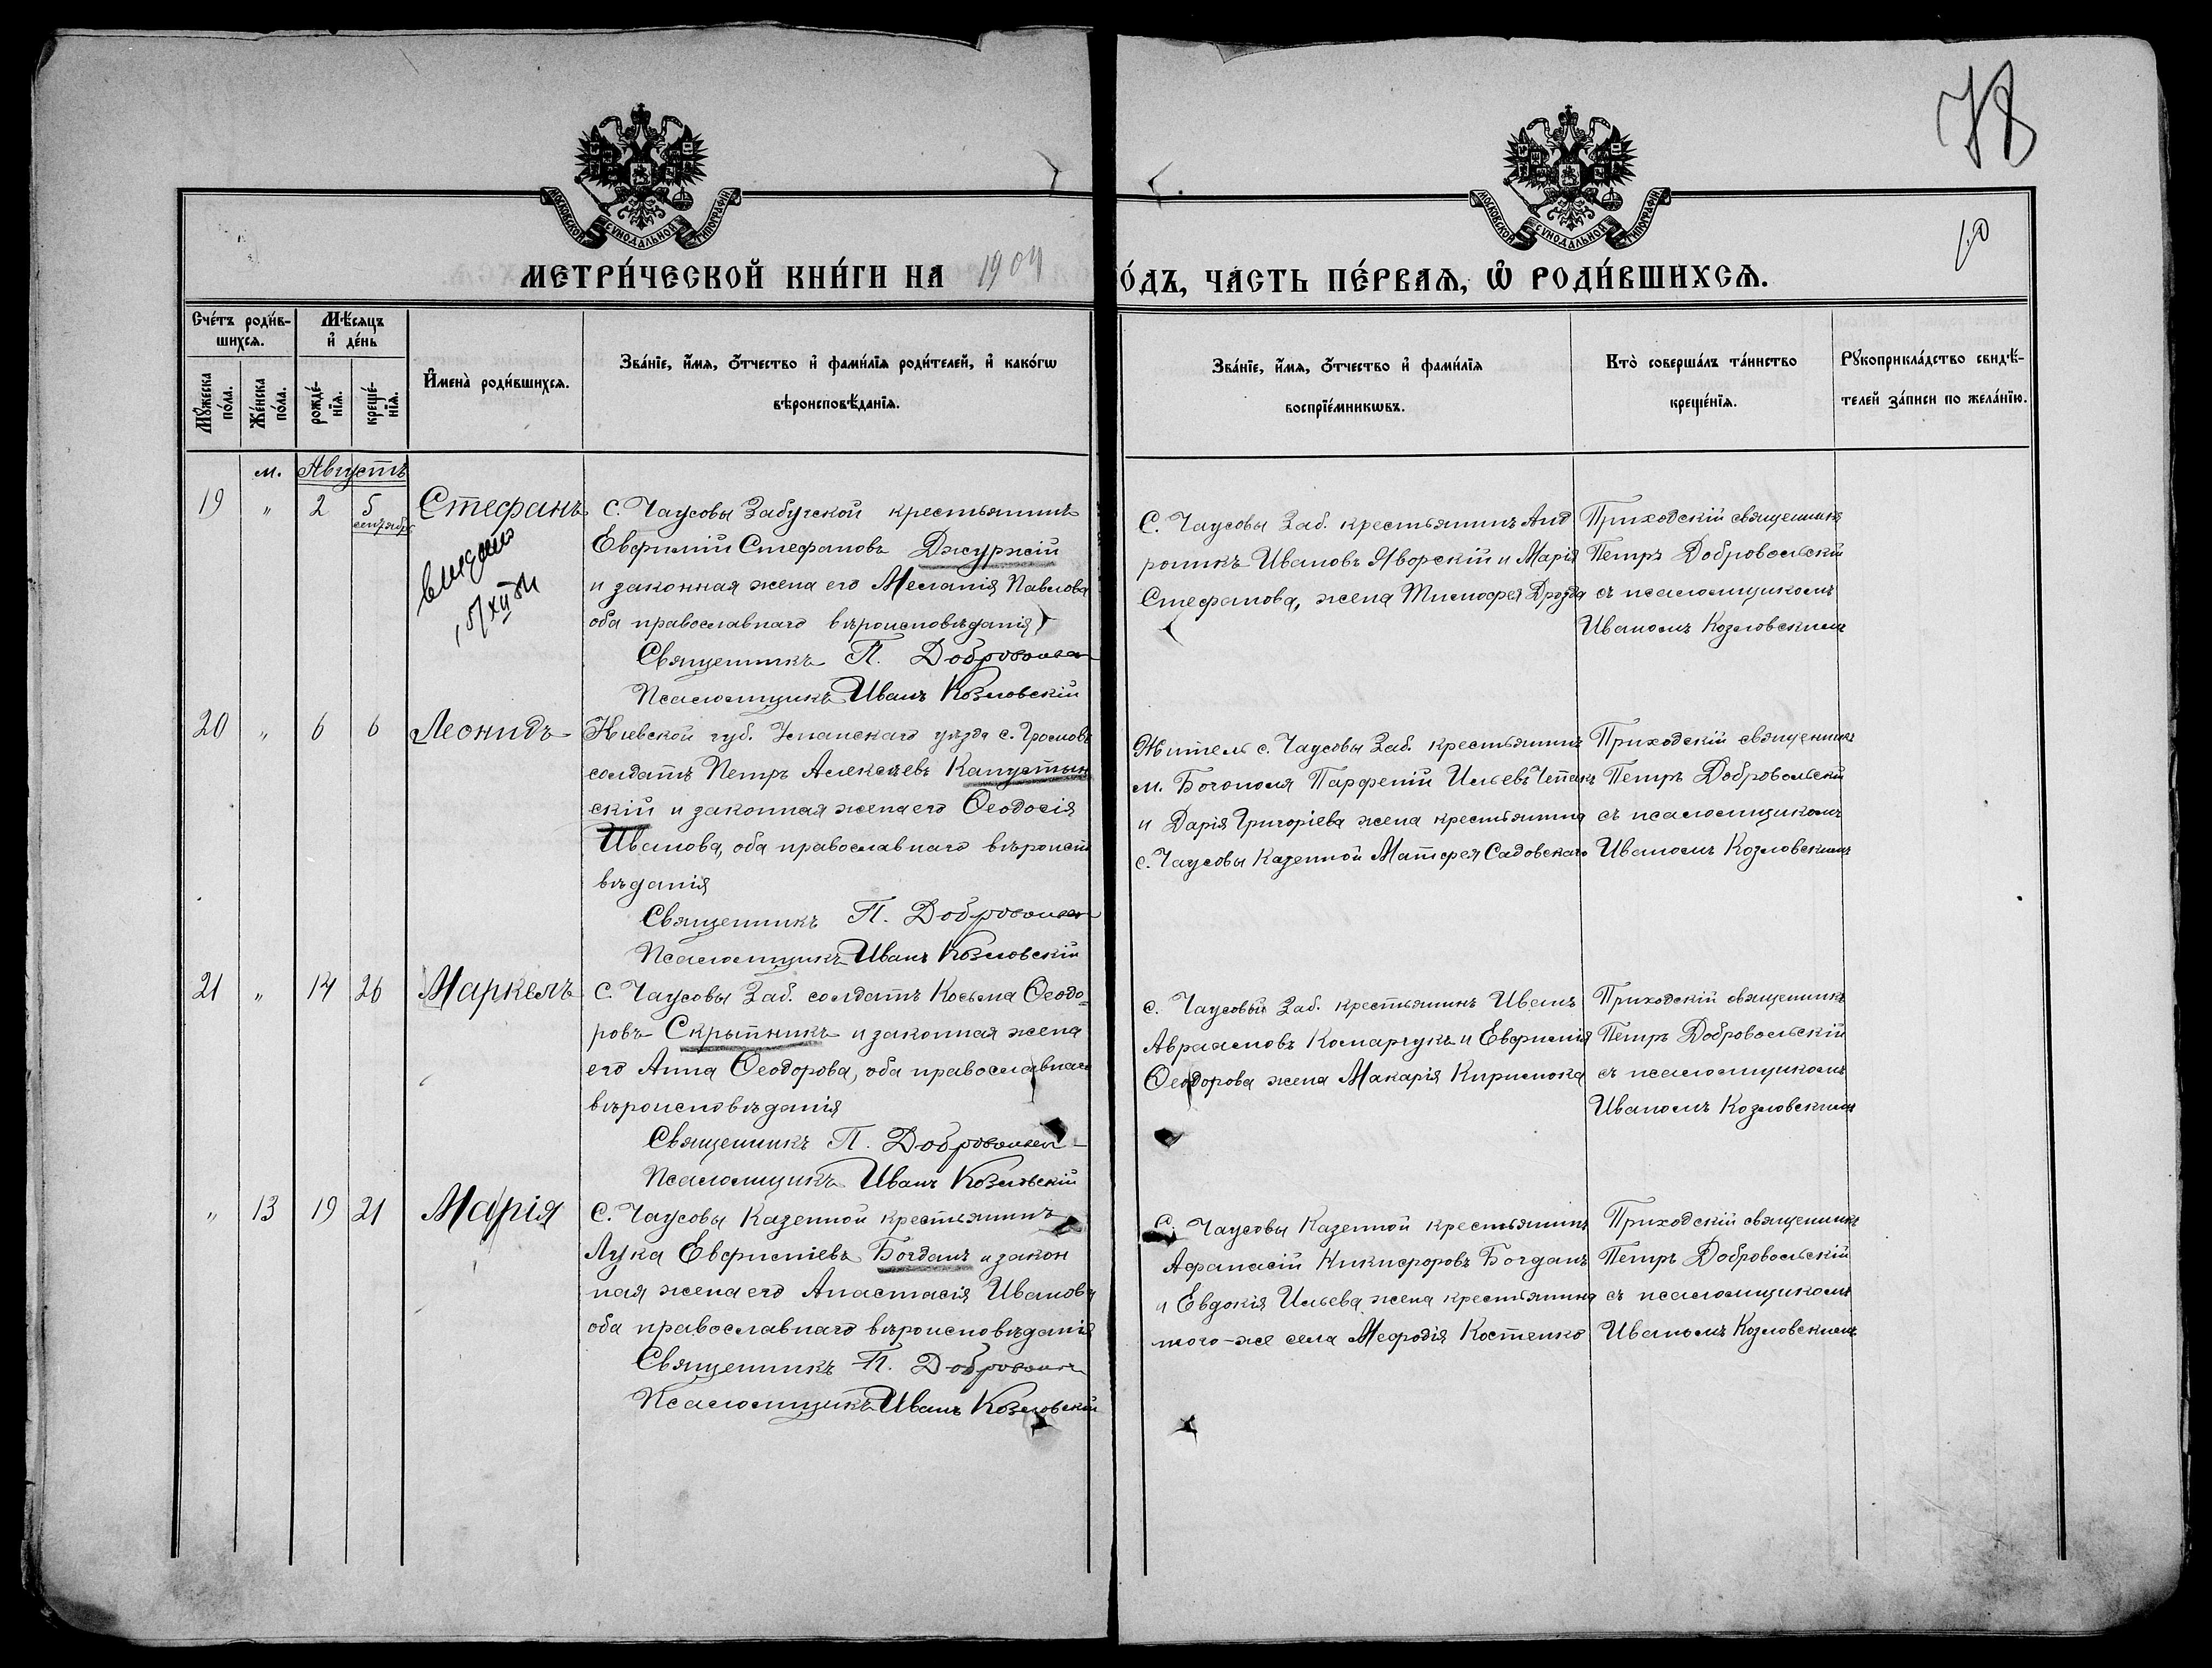 78
10
МОСКОВСКОЙ СѴНОДАЛЬНОЙ ТИПОГРАФІИ
МОСКОВСКОЙ СѴНОДАЛЬНОЙ ТИПОГРАФІИ
МЕТРИ́ЧЕСКОЙ КНИ́ГИ НА 1904
О́ДЪ, ЧА́СТЬ ПЕ́РВАѦ, Ѡ҆ РОДИ́ВШИХСѦ.
Сче́тъ роди́в-
шихсѧ.
Мꙋ́жеска по́ла.
Же́нска по́ла.
Мѣ́сѧцъ
и҆ де́нь
рожде́-
нїѧ.
креще́-
нїѧ.
И҆мена̀ роди́вшихсѧ.
Зва́нїе, и҆́мѧ, ѻ҆́тчество и҆ фами́лїѧ роди́телей, и҆ како́гѡ
вѣроисповѣ́данїѧ.
Зва́нїе, и҆́мѧ, ѻ҆́тчество и҆ фами́лїѧ
воспрїе́мникѡвъ.
Кто̀ соверша́лъ та́инство
креще́нїѧ.
Рꙋкоприкла́дство свидѣ́-
телей за́писи по жела́нїю.
м. Августъ
19 " 2 5 сентября Стефанъ
С. Чаусовы Забугской крестьянинъ
Евфимій Стефановъ Джуржій
и законная жена его Меланія Павлова
оба православнаго вѣроисповѣданія
Священникъ П. Доброволь
Псаломщикъ Иванъ Козловскій
С. Чаусовы Заб. крестьянинъ Анд
роникъ Ивановъ Яворскій и Марія
Стефанова, жена Тимофея Дрозда
Приходскій священникъ
Петръ Добровольскій
съ псаломщикомъ
Иваномъ Козловскимъ
20 " 6 6 Леонидъ
Кіевской губ. Уманскаго уѣзда с.
солдатъ Петръ Алексѣевъ Капустын
скій и законная жена его Ѳеодосія
Иванова, оба православнаго вѣроиспо
вѣданія
Священникъ П. Доброволь
Псаломщикъ Иванъ Козловскій
Житель с. Чаусовы Заб. крестьянинъ
м. Богополя Парфеній Ильевъ
и Дарія Григоріева жена крестьянина
с. Чаусовы Казенной Матфея Садовскаго
Приходскій священникъ
Петръ Добровольскій
съ псаломщикомъ
Иваномъ Козловскимъ
21 " 14 26 Маркелъ
С. Чаусовы Заб. солдатъ Косьма Ѳеодо-
ровъ Скрытникъ и законная жена
его Анна Ѳеодорова, оба православнаго
вѣроисповѣданія
Священникъ П. Доброволь
Псаломщикъ Иванъ Козловскій
с. Чаусовы Заб. крестьянинъ Иванъ
Авраамовъ Комарчукъ и Евфимія
Ѳеодорова жена Макарія Кирилюка
Приходскій священникъ
Петръ Добровольскій
съ псаломщикомъ
Иваномъ Козловскимъ
" 13 19 21 Марія
С. Чаусовы Казенной крестьянинъ
Лука Евфиміевъ Богданъ и закон
ная жена его Анастасія Иванова
оба православнаго вѣроисповѣданія
Священникъ П. Доброволь
Псаломщикъ Иванъ Козловскій
С. Чаусовы Казенной крестьянинъ
Афанасій Никифоровъ Богданъ
и Евдокія Ильева жена крестьянина
того-же села Мефодія Костенко
Приходскій священникъ
Петръ Добровольскій
съ псаломщикомъ
Иваномъ Козловскимъ